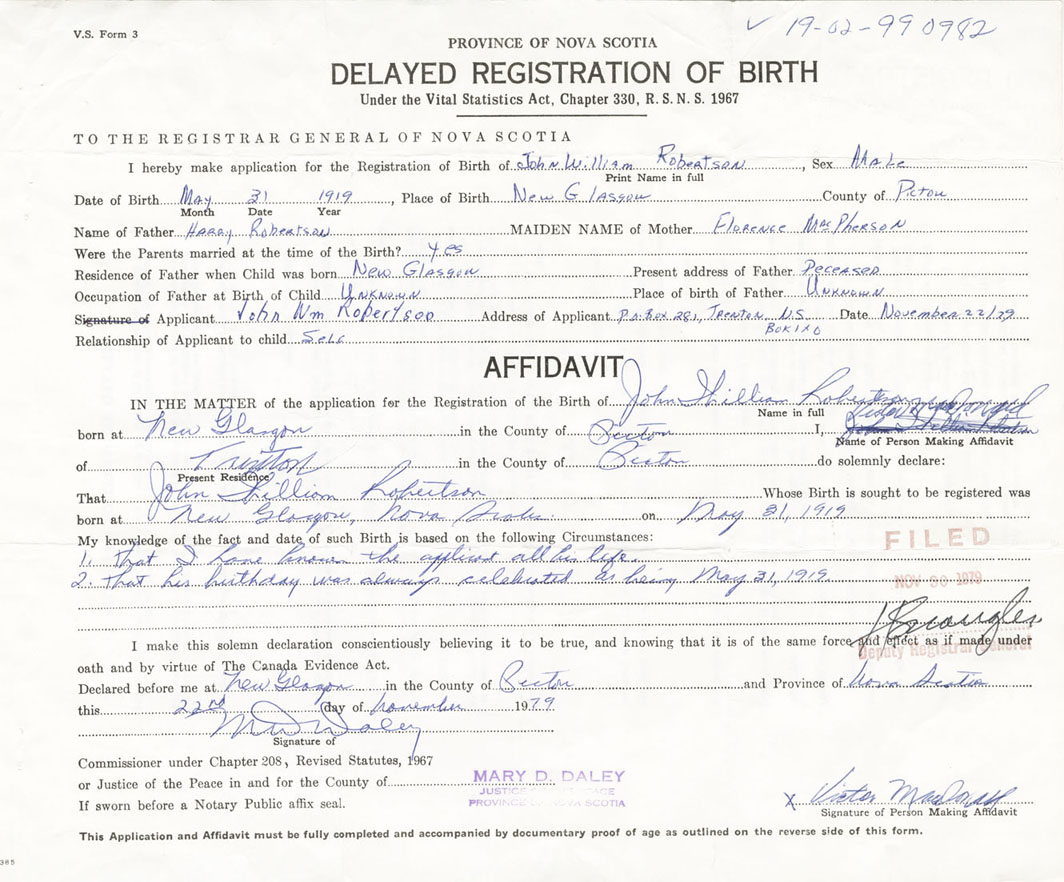 V.S. Form 3
✓ 19-02-99 0982
PROVINCE OF NOVA SCOTIA
DELAYED REGISTRATION OF BIRTH
Under the Vital Statistics Act, Chapter 330, R. S. N. S. 1967
TO THE REGISTRAR GENERAL OF NOVA SCOTIA
I hereby make application for the Registration of Birth of John William Robertson, Sex Male
Print Name in full
Date of Birth May 31 1919, Place of Birth New Glasgow County of Pictou
Month Date Year
Name of Father Harry Robertson MAIDEN NAME of Mother Florence MacPherson
Were the Parents married at the time of the Birth? Yes
Residence of Father when Child was born New Glasgow Present address of Father Deceased
Occupation of Father at Birth of Child Unknown Place of birth of Father Unknown
Signature of Applicant John Wm Robertson Address of Applicant P.O. Box 281, Trenton, N.S. Date November 22/79
BOK1X0
Relationship of Applicant to child Self
AFFIDAVIT
IN THE MATTER of the application for the Registration of the Birth of John William Robertson
Name in full
born at New Glasgow in the County of Pictou I, Victor MacDonald
Name of Person Making Affidavit
of Trenton in the County of Pictou do solemnly declare:
Present Residence
That John William Robertson Whose Birth is sought to be registered was
born at New Glasgow, Nova Scotia on May 31, 1919
My knowledge of the fact and date of such Birth is based on the following Circumstances:
1. That I have known the applicant all his life.
2. That his birthday was always celebrated as being May 31, 1919
FILED
NOV 30 1979
I make this solemn declaration conscientiously believing it to be true, and knowing that it is of the same force and effect as if made under
Deputy Registrar General
oath and by virtue of The Canada Evidence Act.
Declared before me at New Glasgow in the County of Pictou and Province of Nova Scotia
this 22nd day of November 1979
M D Daley
Signature of
Commissioner under Chapter 208, Revised Statutes, 1967
or Justice of the Peace in and for the County of
If sworn before a Notary Public affix seal.
MARY D. DALEY
JUSTICE OF THE PEACE
PROVINCE OF NOVA SCOTIA
X Victor MacDonald
Signature of Person Making Affidavit
This Application and Affidavit must be fully completed and accompanied by documentary proof of age as outlined on the reverse side of this form.
385